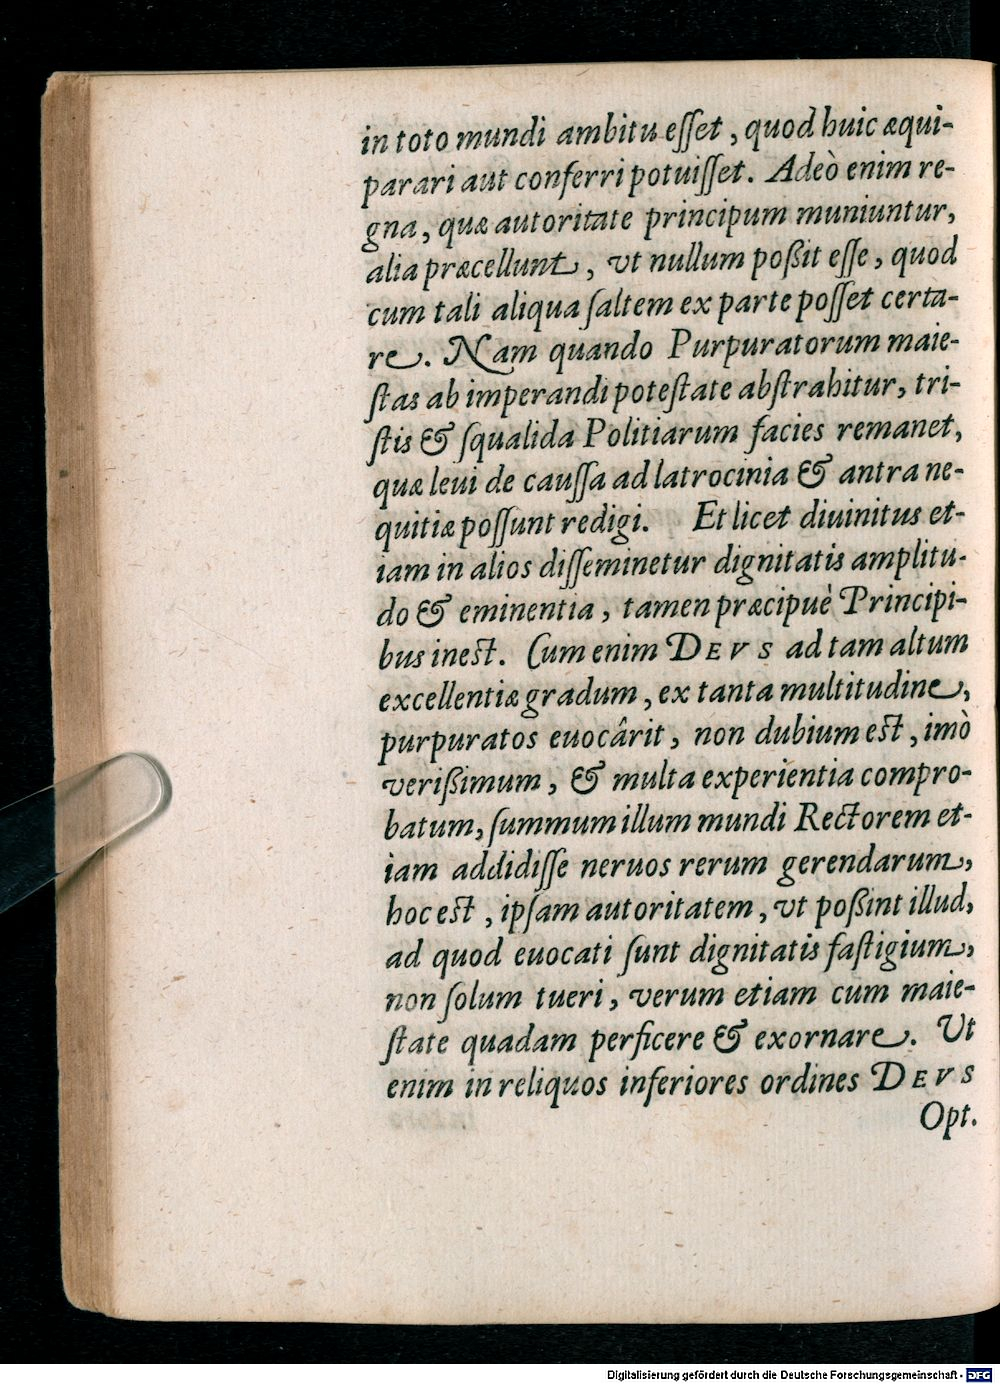 in toto mundi ambitu eſſet, quod huic æqui-
parari aut conferri potuiſſet. Adeò enim re-
gna, quæ autoritate principum muniuntur,
alia præcellunt, vt nullum poßit eſſe, quod
cum tali aliqua ſaltem ex parte poſſet certa-
re. Nam quando Purpuratorum maie-
ſtas ab imperandi poteſtate abſtrahitur, tri-
ſtis & ſqualida Politiarum facies remanet,
quæ leui de cauſſa ad latrocinia & antra ne-
quitiæ poſſunt redigi. Et licet diuinitus et-
iam in alios diſſeminetur dignitatis amplitu-
do & eminentia, tamen præcipuè Principi-
bus ineſt. Cum enim DEVS ad tam altum
excellentiæ gradum, ex tanta multitudine,
purpuratos euocârit, non dubium eſt, imò
verißimum, & multa experientia compro-
batum, ſummum illum mundi Rectorem et-
iam addidiſſe neruos rerum gerendarum,
hoc eſt, ipſam autoritatem, vt poßint illud,
ad quod euocati ſunt dignitatis faſtigium,
non ſolum tueri, verum etiam cum maie-
ſtate quadam perficere & exornare. Ut
enim in reliquos inferiores ordines DEVS
Opt.
Digitalisierung gefördert durch die Deutsche Forschungsgemeinschaft - DFG